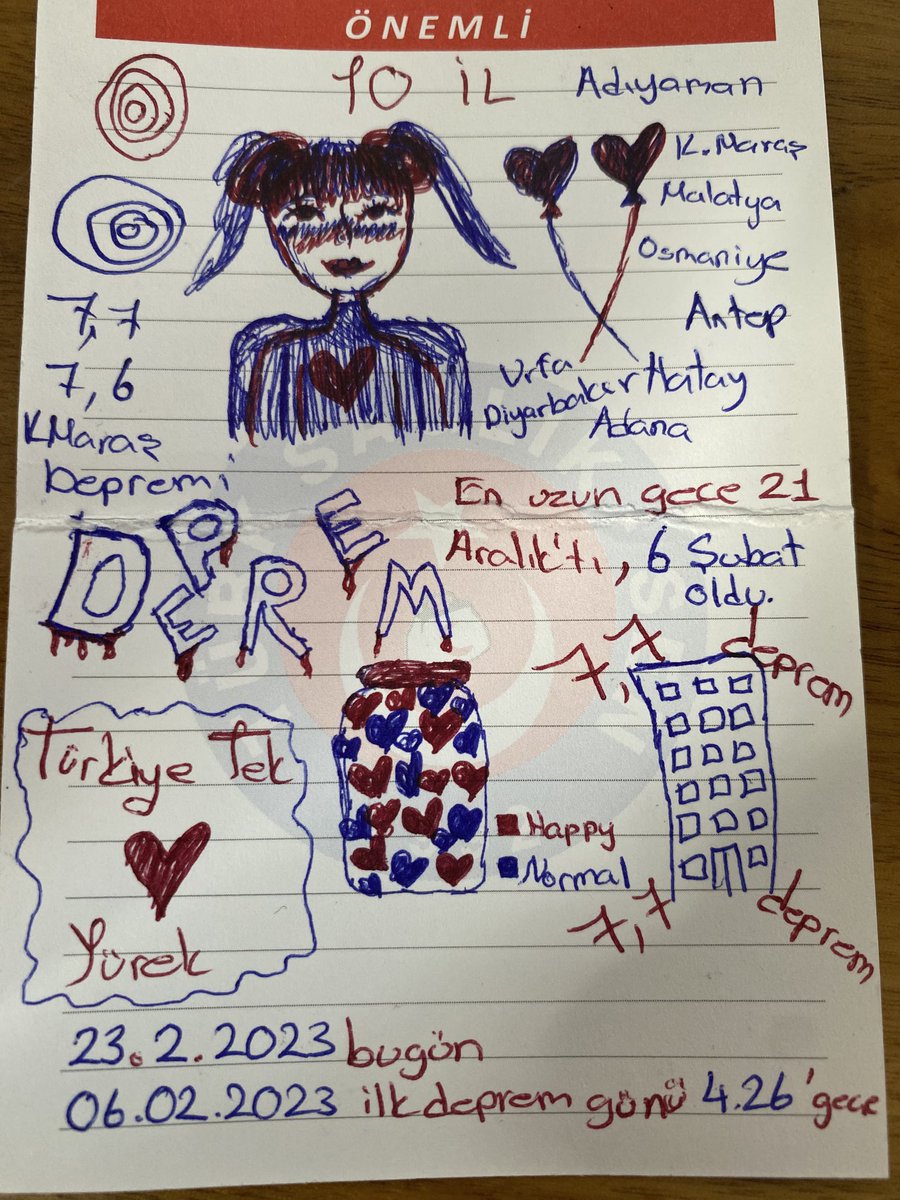 ÖNEMLİ
10 İL
Adıyaman
K.Maraş
Malatya
Osmaniye
Antep
Urfa
Hatay
Diyarbakır
Adana
7,7
7,6
K.Maraş
Depremi
En uzun gece 21
Aralık'tı, 6 Şubat
oldu.
DEPREM
7,7 deprem
Türkiye Tek
Yürek
Happy
Normal
7,7 deprem
23.2.2023 bugün
06.02.2023 ilk deprem günü 4.26'gece